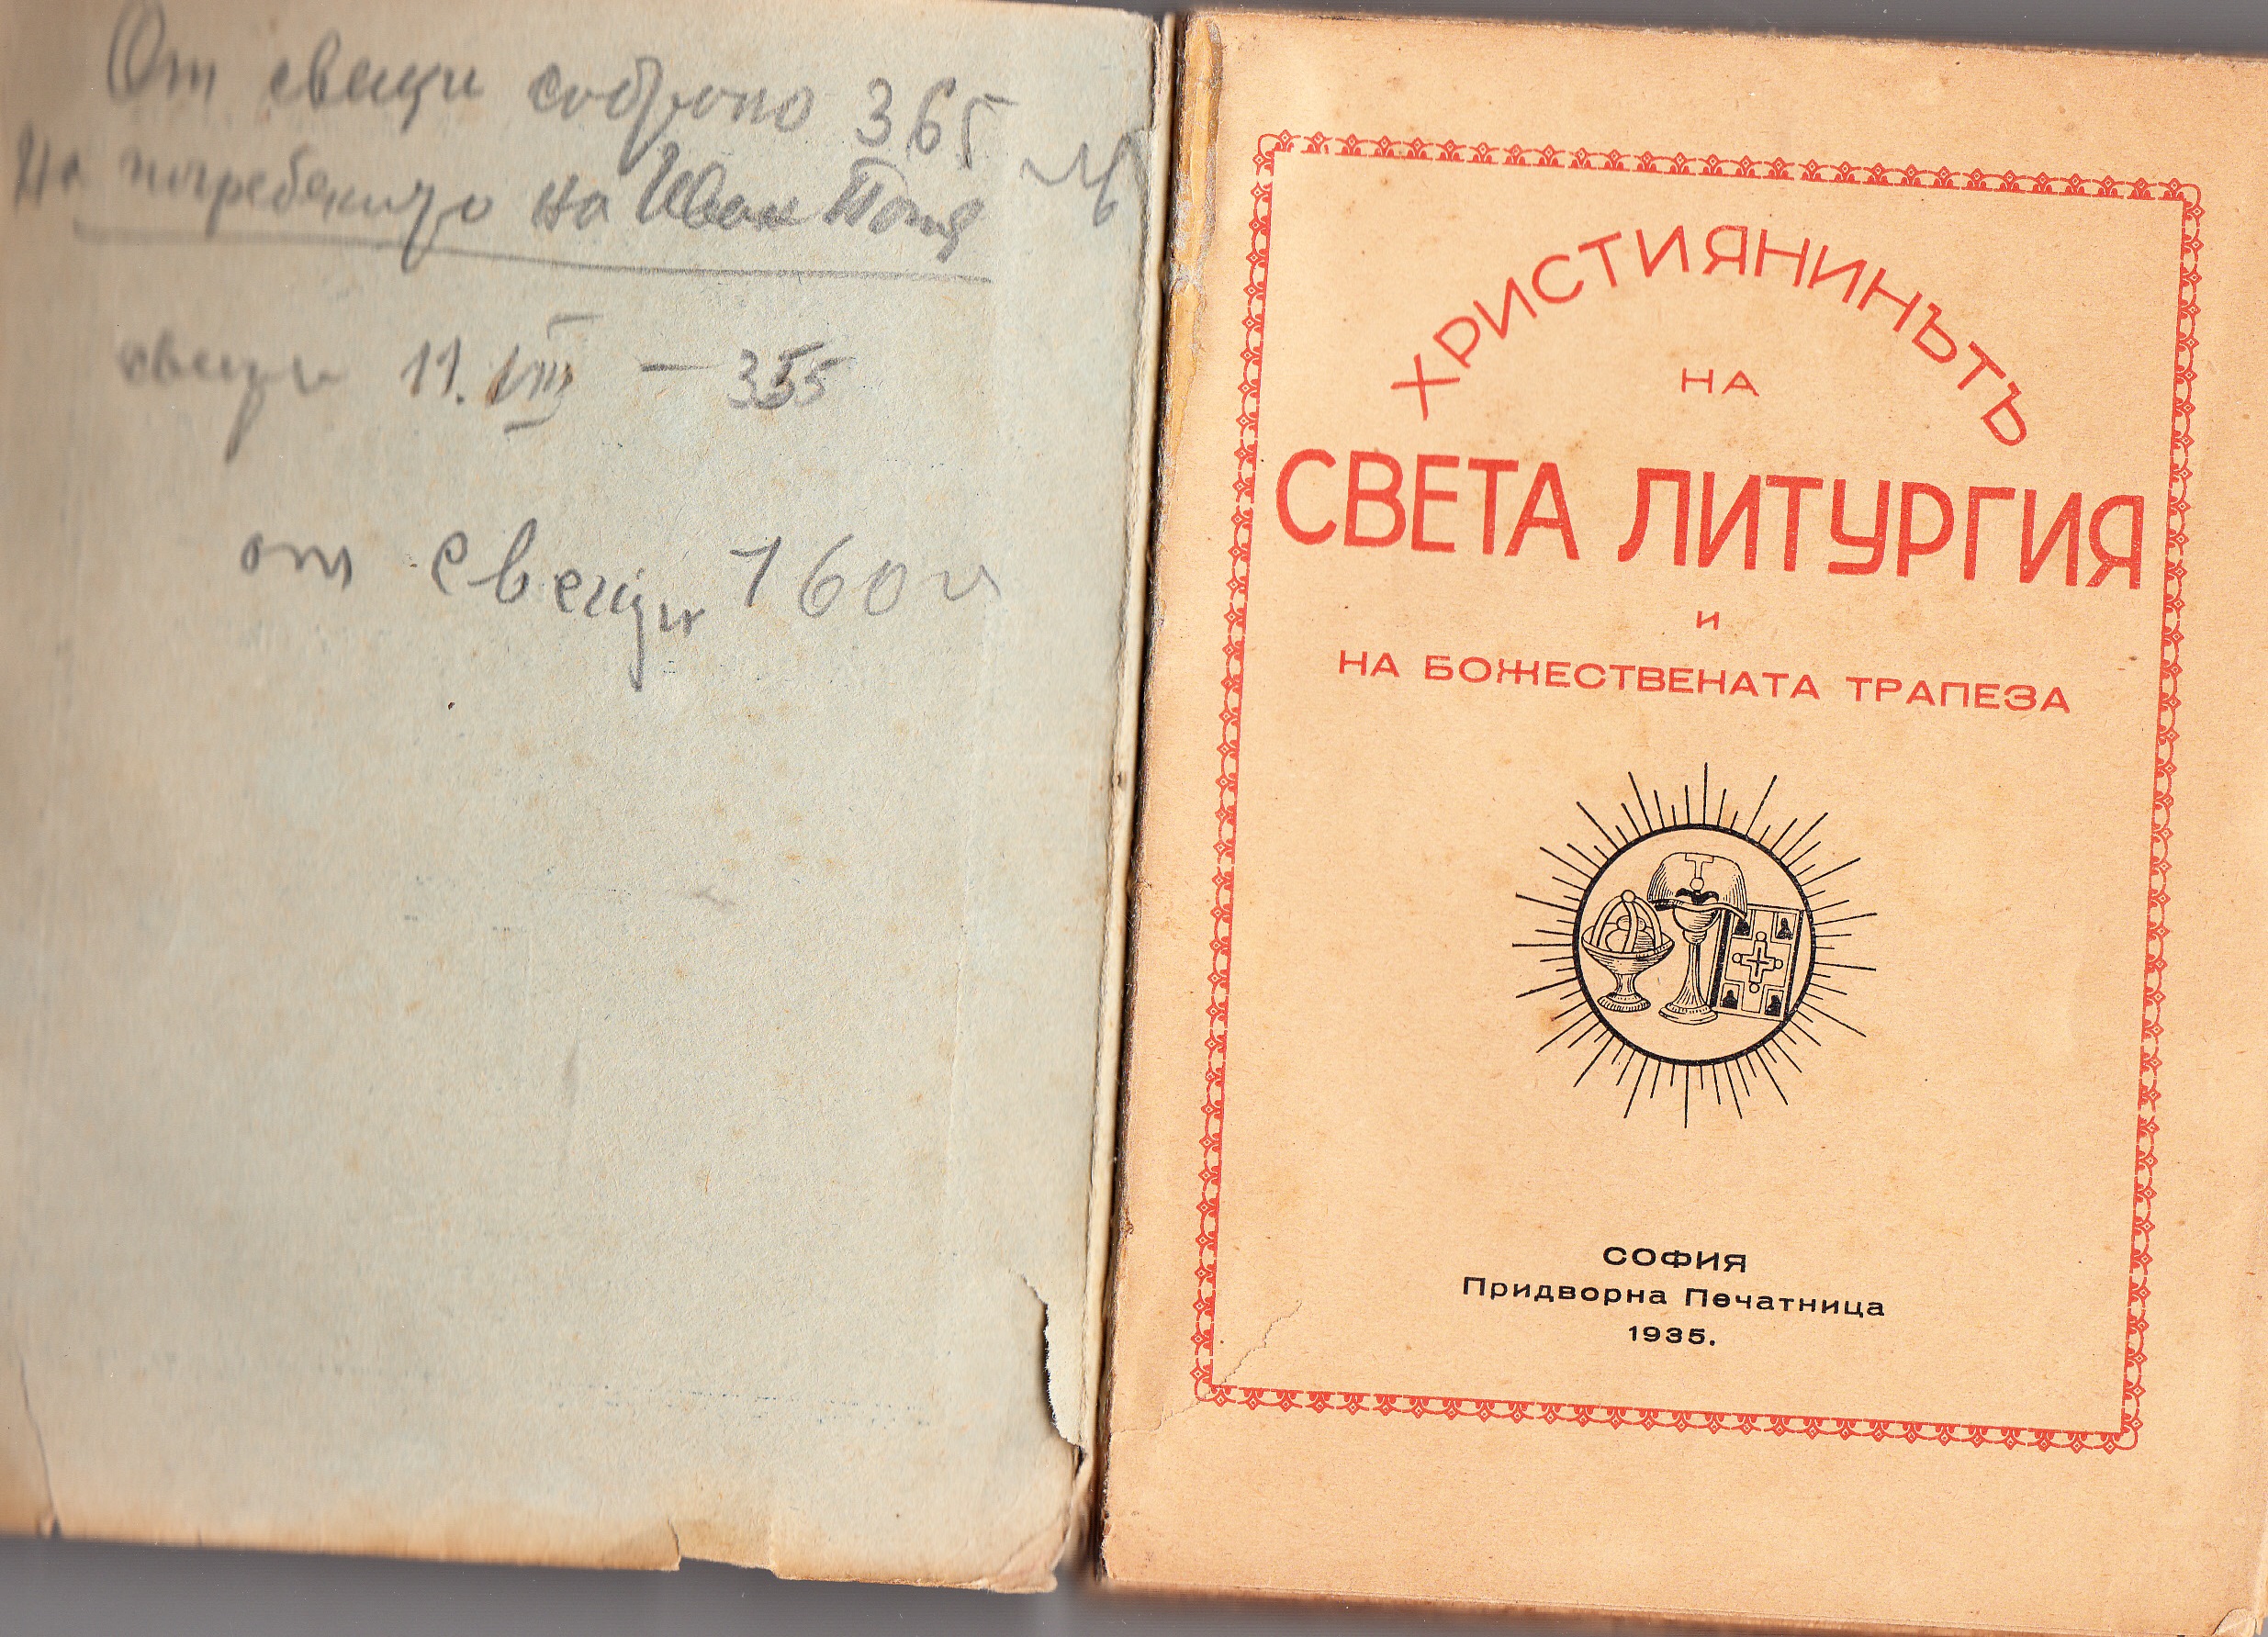 От свещи събрано 365 лв
На погребението на Иван
свещи 11. VIII — 355
от свещи 160 л
ХРИСТИЯНИНЪТЪ
НА
СВЕТА ЛИТУРГИЯ
и
НА БОЖЕСТВЕНАТА ТРАПЕЗА
СОФИЯ
Придворна Печатница
1935.